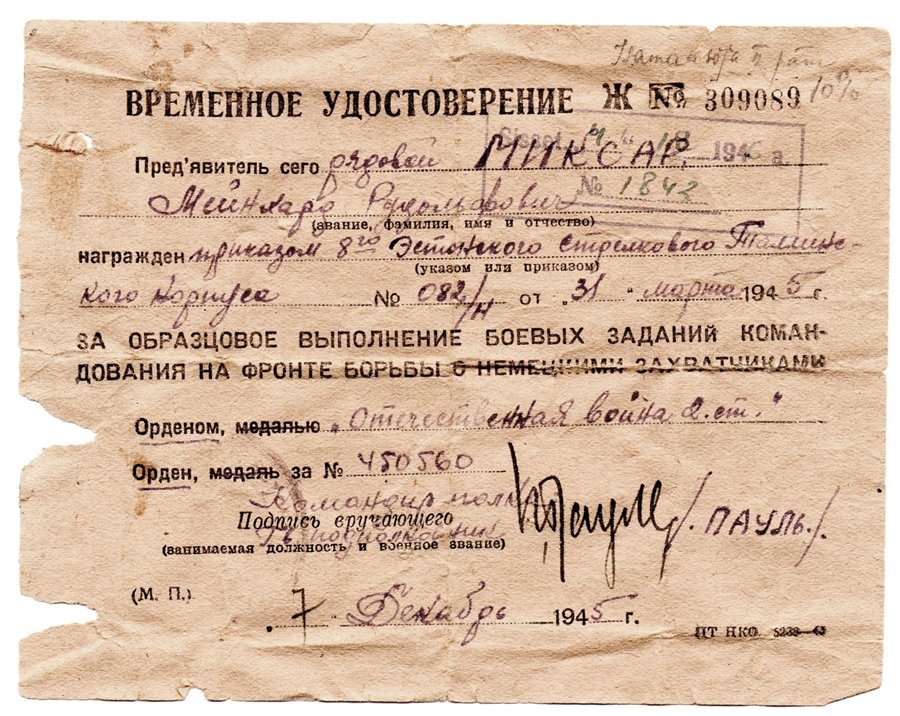 ВРЕМЕННОЕ УДОСТОВЕРЕНИЕ Ж № 309089 10%
Sisset. 194 a.
№ 1842
Пред'явитель сего рядовой МИКСАР.
Мейнхард Рудольфович
(звание, фамилия, имя и отчество)
награжден приказом 8го Эстонского Стрелкового Таллинс-
(указом или приказом)
кого Корпуса № 082/н от „31" марта 1945 г.
ЗА ОБРАЗЦОВОЕ ВЫПОЛНЕНИЕ БОЕВЫХ ЗАДАНИЙ КОМАН-
ДОВАНИЯ НА ФРОНТЕ БОРЬБЫ С НЕМЕЦКИМИ ЗАХВАТЧИКАМИ
Орденом, медалью „Отечественная война 2.ст."
Орден, медаль за № 450560
Командир полка
Подпись вручающего /ПАУЛЬ./
Гв. подполковник
(занимаемая должность и военное звание)
(М. П.)
7 Декабрь 1945 г.
ПТ НКО. 5238—45